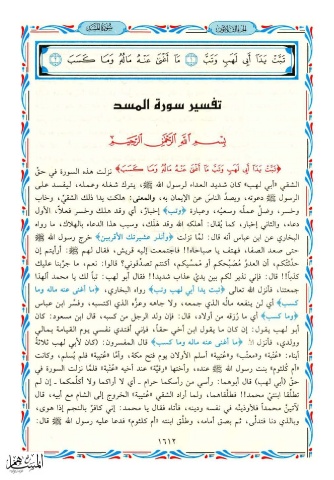 سورة المسد
تَبَّتْ يَدَا أَبِي لَهَبٍ وَتَبَّ ١ مَا أَغْنَىٰ عَنْهُ مَالُهُ وَمَا كَسَبَ ٢
تفسير سورة المسد
بسم الله الرحمن الرحيم
﴿تَبَّتْ يَدَا أَبِي لَهَبٍ وَتَبَّ مَا أَغْنَى عَنْهُ مَالُهُ وَمَا كَسَبَ﴾ نزلت هذه السورة في حق
الشقي «أبي لهب» كان شديد العداء لرسول الله ﷺ، يترك شغله وعمله، ليفسد على
الرسول ﷺ دعوته، ويصدَّ الناس عن الإيمان به، والمعنى: هلكت يدا ذلك الشقيّ، وخاب
وخسر، وضلَّ عمله وسعيه، وعبارة ﴿وتب﴾ إخبارٌ، أي وقد هلك وخسر فعلاً، الأول
دعاء، والثاني إخبار، كما يُقال: أهلكه الله وقد هلك، وسبب هذا الدعاء بالهلاك، ما رواه
البخاري عن ابن عباس أنه قال: لمَّا نزلت ﴿وأنذر عشيرتك الأقربين﴾ خرج رسول الله ﷺ
حتى صعد الصفا، فهتف يا صباحاه!! فاجتمعت إليه قريش، فقال لهم ﷺ: أرأيتم إن
حدَّثتكم، أن العدوَّ مُصبِّحكم أو مُمسِّيكم، أكنتم تصدقوني؟ قالوا: نعم، ما جرَّبنا عليك
كذباً!! قال: فإني نذير لكم بين يدي عذاب شديد!! فقال أبو لهب: تباً لك يا محمد ألهذا
جمعتنا، فأنزل الله تعالى ﴿تبت يدا أبي لهب وتب﴾ رواه البخاري، ﴿ما أغنى عنه ماله وما
كسب﴾ أي لن ينفعه مالُه الذي جمعه، ولا جاهه وعزُّه الذي اكتسبه، وفسَّر ابن عباس
﴿وما كسب﴾ أي ما رُزقه من أولاد، قال: فإن ولد الرجل من كسبه، قال ابن مسعود: كان
أبو لهب يقول: إن كان ما يقول ابن أخي حقاً، فإني أفتدي نفسي يوم القيامة بمالي
وولدي، فأنزل الله ﴿ما أغنى عنه ماله وما كسب﴾ قال المفسرون: (كان لأبي لهب ثلاثة
أبناء: «عُتبة» و«معتِّب» و«عُتيبة» أسلم الأولان يوم فتح مكة، وأمَّا «عُتيبة» فلم يُسلم، وكانت
«أم كلثوم» بنت رسول الله ﷺ عنده، وأختها «رقيَّة» عند أخيه «عُتبة» فلمَّا نزلت السورة في
حقِّ (أبي لهب) قال أبوهما: رأسي من رأسكما حرام ـ أي لا أراكما ولا أكلمكما ـ إن لم
تطلِّقا ابنتيْ محمد!! فطلَّقاهما، ولما أراد الشقي «عتيبة» الخروج إلى الشام مع أبيه، قال
لآتينَّ محمداً فلأوذينَّه في نفسه ودينه، فأتاه فقال يا محمد: إني كافرٌ بالنجم إذا هوى،
وبالذي دنا فتدلَّى، ثم بصق أمامه، وطلَّق ابنته «أم كلثوم» فدعا عليه رسول الله ﷺ قال:
١٦١٢